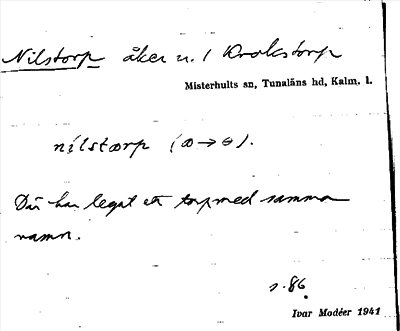 Nilstorp åker u. / Krokstorp
Misterhults sn, Tunaläns hd, Kalm. l.
nilstorp
Där har legat ett torp med samma
namn.
s. 86.
Ivar Modéer 1941